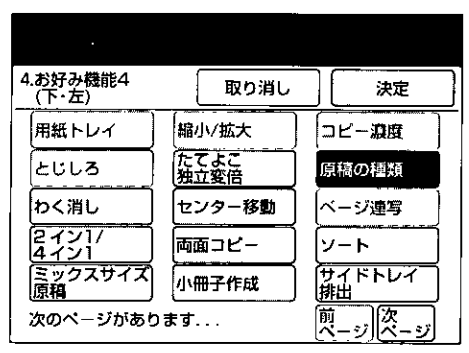 4.お好み機能4
(下・左)
取り消し
決定
用紙トレイ
縮小/拡大
コピー濃度
とじしろ
たてよこ
独立変倍
原稿の種類
わく消し
センター移動
ページ連写
2イン1/
4イン1
両面コピー
ソート
ミックスサイズ
原稿
小冊子作成
サイドトレイ
排出
次のページがあります...
前
ページ
次
ページ